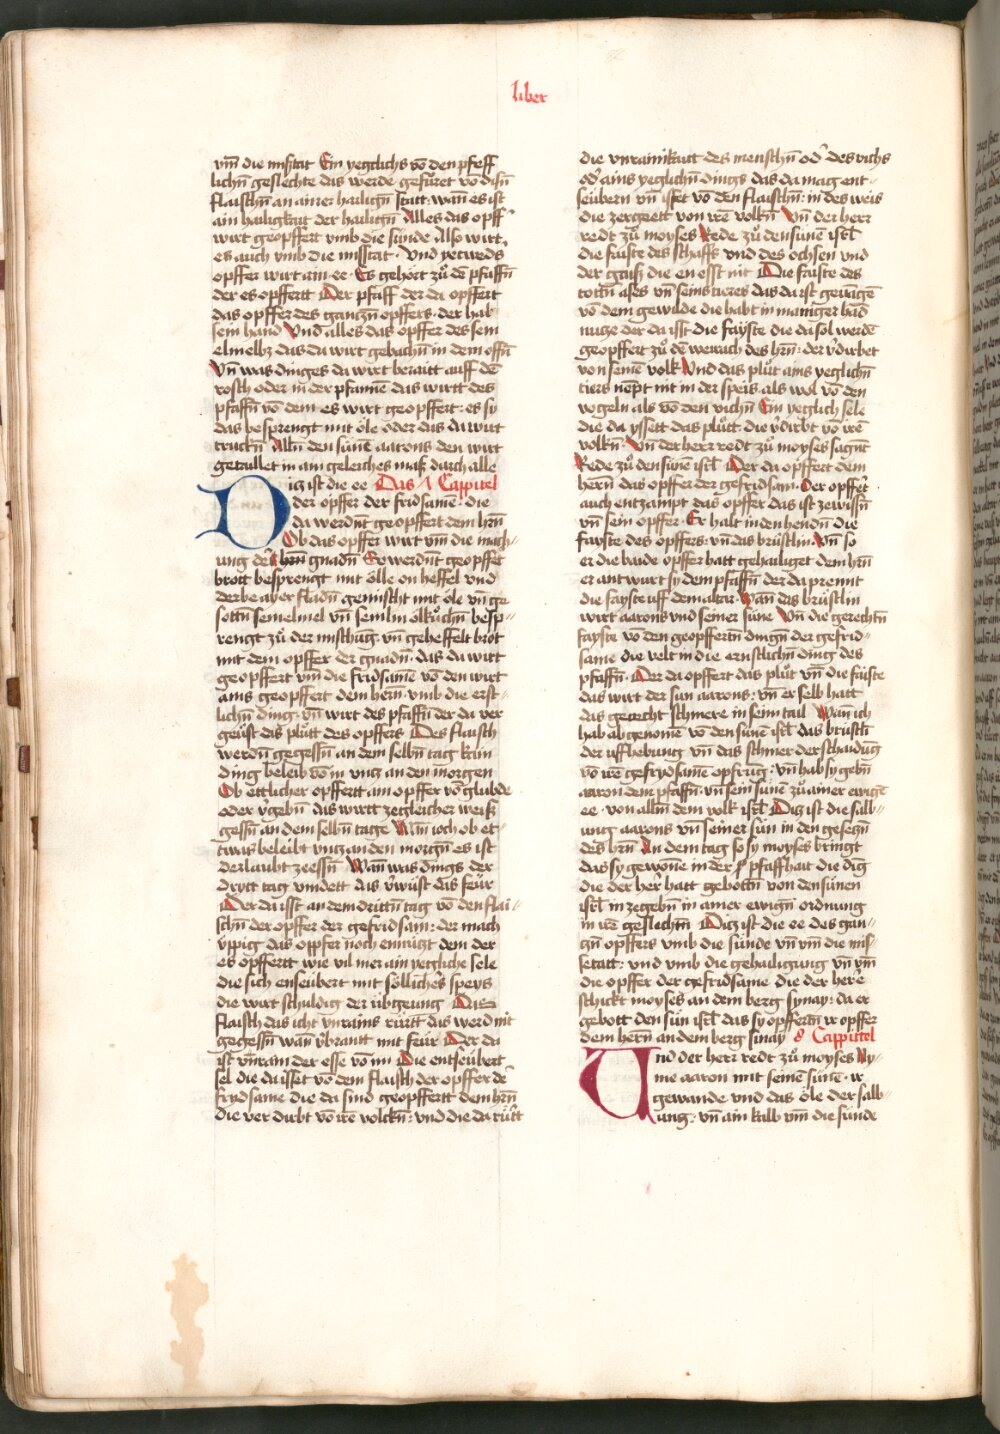 liber
vm̄ die misſitat Ein yegclichs vō den pfeff
lichn̄ geslechte das werde gefüret vō diſn̄
flaiſchn̄ an ainer hailign̄ ſtatt· wan̄ es iſt
ain hailigkait der hailign̄ Alles das opff
wirt geopffert vmb die sünde Also wirt
es auch vmb die misſitat · Vnd yetweds
opffer wirt ain ee· Es gehört zů dē pfaffn̄
der es opffertt Der pfaff der da opffert
das opffer des gantzn̄ opffers· der hab
sein hand Vnd alles das opffer des sem
elmelbz das da wirt gebachn̄ in dem offn̄
Vn̄ was dinges da wirt beraitt auff dē
rosch oder in der pfannē das wirtt des
pfaffn̄ vō dem es wirt geopffert: es sy
das besprengt mit öle oder das da wirt
truckn̄ Alln̄ den sünē aarons den wirt
getaillet in ain geleiches maſ durch alle
Ditz ist die ee Das 7 Cappitel
der opffer der fridsamē· die
da werdn̄t geopffert dem hrn̄
Ob das opffer wirt vm̄ die mach
ung der hrn̄ gnadn̄ So werdn̄t geopffet
brott besprengt mit ölle on heffel vnd
derbe ayer fladn̄ gemischt mit öle vn̄ ge
sottn̄ semelmel vn̄ semlin ölkůchn̄ besp
rengt zů der mischūg vn̄ geheffelt brot
mit dem opffer der gnadn̄· das da wirt
geopffert vm̄ die fridsamē vō den wirt
ains geopffert dem hern· vmb die erst
lichn̄ ding· vn̄ wirt des pfaffn̄ der da ver
geüst das plůtt des opffers Des flaisch
werdn̄ gegessn̄ an dem selbn̄ tag kain
ding beleib vō im vntz an den morgen
Ob ettlicher opffertt ain opffer vō glubde
oder v̄gebn̄ das wirtt zegleicher weiſ
gessn̄ an dem selbn̄ tage Wan̄ ioch ob et
twas beleibt vntz an den morgn̄ es ist
derlaubt zeessn̄ Wan̄ was dings der
drytt tag vindett das v̄wüst das feür
Der da isst an dem drittn̄ tag vō den flai
schn̄ der opffer der gefridsam: der mach
vppig das opffer noch ennützt dem der
es opffertt wie vil mer ain yegliche sele
die sich enseübert mit söllicher speys
die wirt schuldig der übtgeung Das
flaisch das icht vnrains rürtt das werd nit
gegessn̄ wan̄ v̄brantt mit feür Der da
ist vnrain der esse vō im Die entseübert
sel die da isset vō dem flaisch der opffer dē
frydsame die da sind geopffertt dem hrn̄
die ver dirbt vō irē volckn̄· vnd die da rürt
die vnrainikait des menschn̄ od̓ des vichs
od̓ ains yeglichn̄ dings das da mag ent
seübern vn̄ isset vō den flaischn̄: in des weis
die zergeett von irē volkn̄ Vn̄ der herr
redt zů moyses Rede zů den sünē isrl̄
die faiste des schaffs vnd des ochsen vnd
der gaiſ die en esst nit Die faiste des
totn̄ ases vn̄ seins tieres das da ist gevāgē
vō dem gewilde die habt in maniger hād
nutze der da isst die fayste die da sol werdē
geopffert zů dē weirach des hrn̄: der v̄dirbet
von seinē volk Vnd das plůt ains yeglichn̄
tiers nēpt nit in der speis als wol vō den
vogeln als vō den vichn̄ Ein yeglich sele
die da yssett das plůtt die v̄dirbt vō irē
volkn̄ · Vn̄ der herr redt zů moyses sagnt
Rede zů den sünē isrl̄ Der da opffert dem
hern̄ das opffer der gefridsam· Der opffet
auch entzampt das opffer das ist zewissn̄
vn̄ sein opffer · Er halt in den hendn̄ die
fayste des opffers: vn̄ das brüstlin· Vn̄ so
er die baide opffer hatt gehailiget dem hrn̄
er antwurt sy dem pfaffn̄ der da prennt
die fayste uff dem altar· Wan̄ das brüstlin
wirt aarons vnd seiner süne Vn̄ die gerechtn̄
fayste vō den geopffertn̄ dingn̄ der gefrid
same die velt in die ernstlichn̄ ding des
pfaffn̄ · Der da opffert das plůt vn̄ die faiste
das wirt der sun aarons: vn̄ er selb hatt
das gerecht schmere in seim tail Wan̄ ich
hab abgenomē vō den sünē isrl̄ das brüstli
der uffhebung vn̄ das schmer der schaidūg
vō irē gefrydsamē opfrūg: vn̄ hab sy gebn̄
aaron dem pfaffn̄: vn̄ sein sünē zů ainer ewigē
ee· von alln̄ dem volk isrl̄ Ditz ist die salb
ung aarons vn̄ seiner sün in den gesetzn̄
des hrn̄ An dem tag so sy moyses bringt
das sy gewone in der pfaffhait die dīg
die der her hatt gebottn̄ von den sünen
isrl̄ in zegebn̄ in ainer ewign̄ ordnung
in irē geslechn̄ Ditz ist die ee des gan
tzn̄ opffers vmb die sünde vn̄ vm̄ die mis
setatt: vnd vmb die gehailigung vn̄ vm̄
die opffer der gefridsame die der here
schickt moyses an dem berg synay: da er
gebott den sün isrl̄ das sy opffertn̄ ir opffer
dem hern̄ an dem berg sinay 8 Cappittel
Und der herr redt zů moyses Ny
me aaron mit seinē sünē · ir
gewande vnd das öle der salb
ung: vn̄ ain kalb vm̄ die sünde